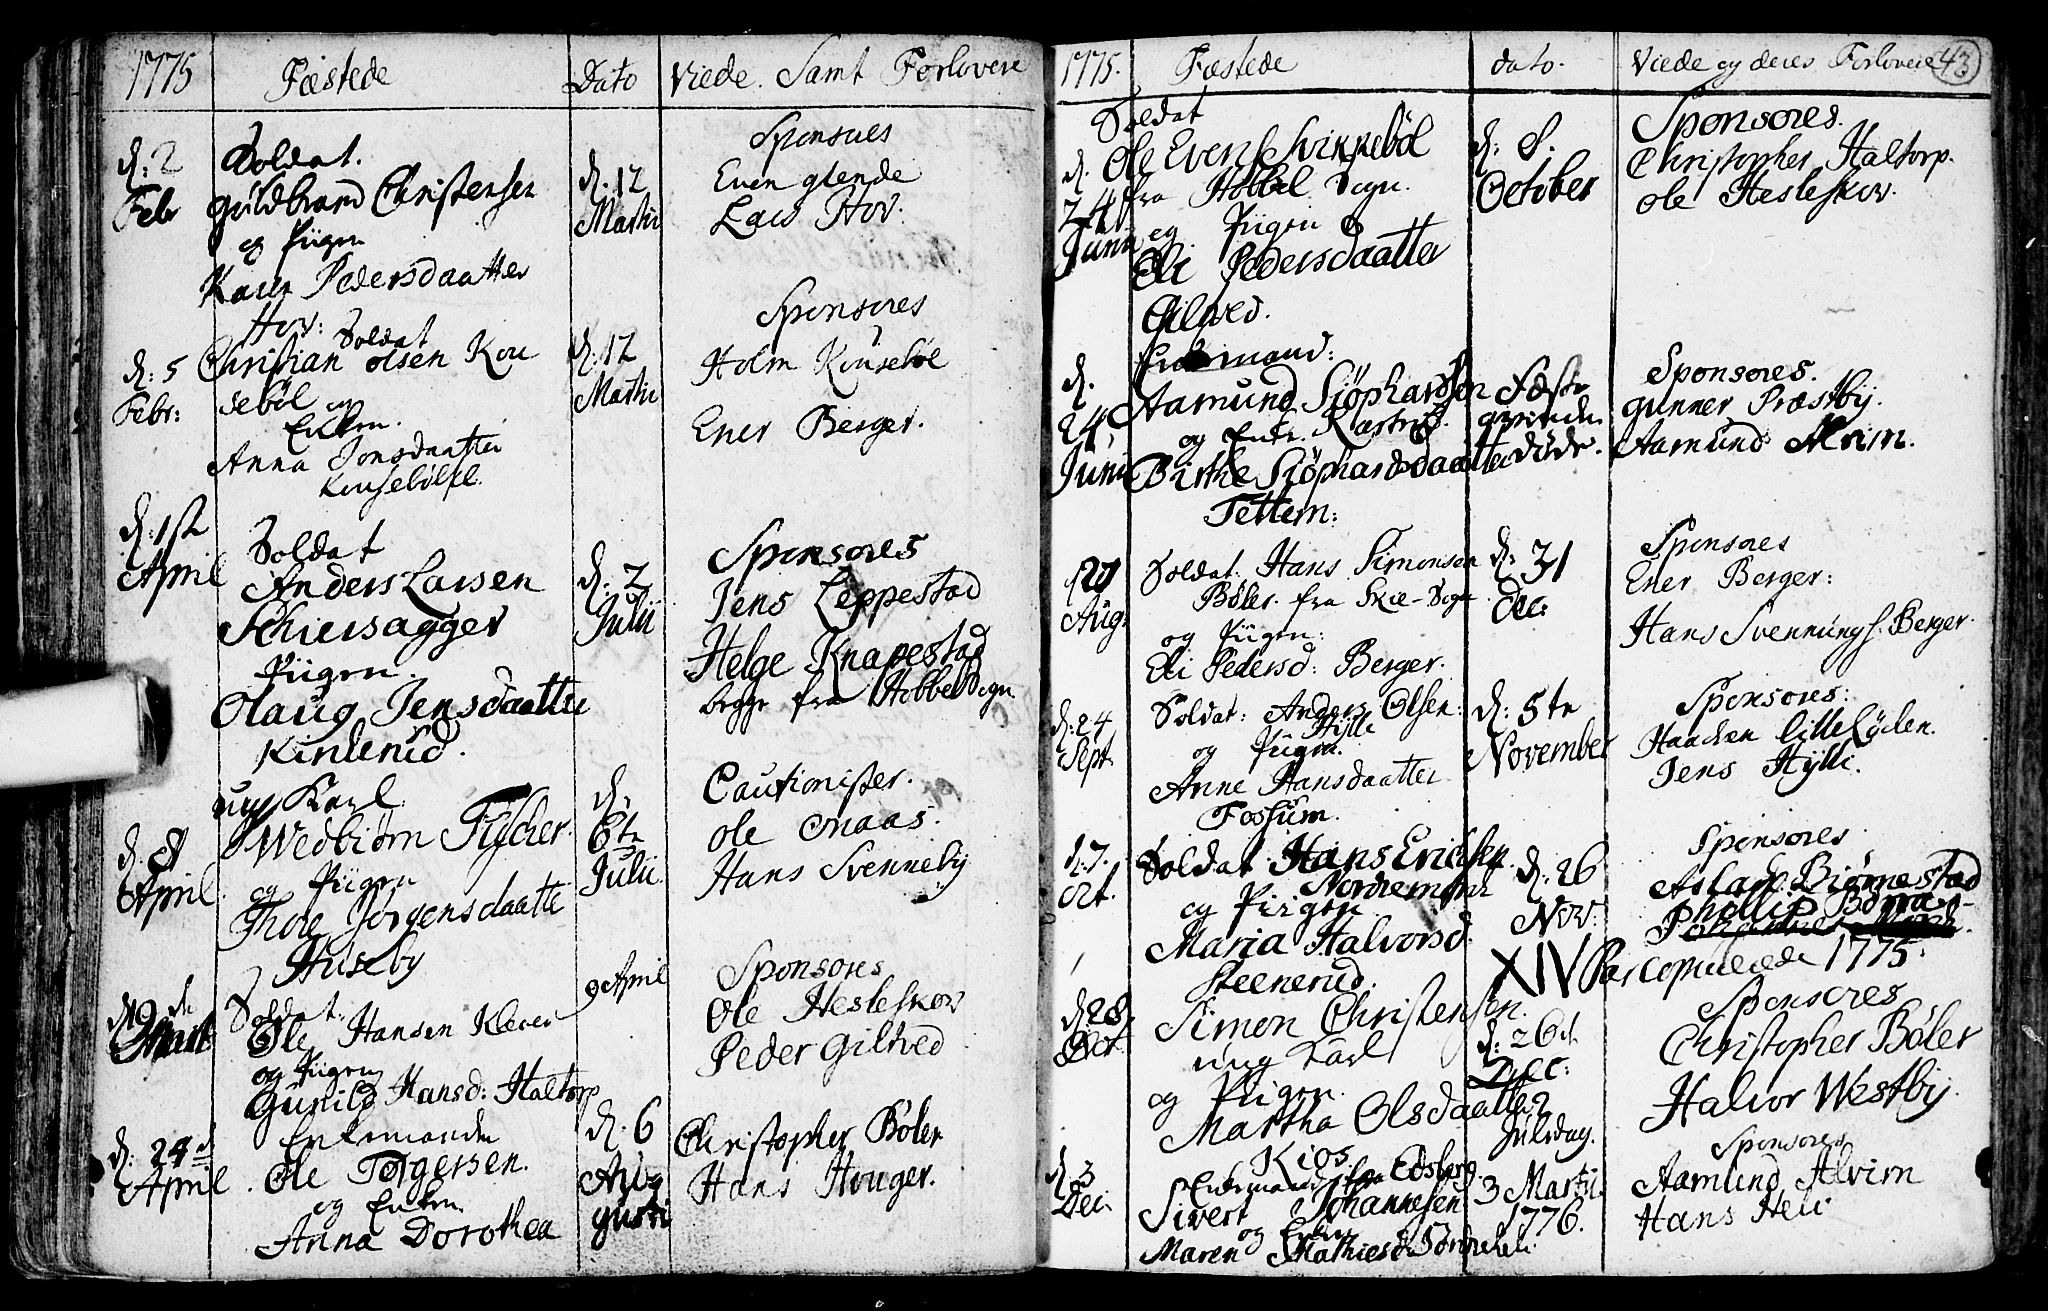 1775 Fæstede Dato Viede Samt Forlovere
d: 2 Febr
Soldat.
Guldbrand Christensen
og Piigen
Kari Pedersdaatter
Hov:
d. 12 Martii
Sponsores
Even glende
Lars Hov.
d: 5 Febr:
Soldat
Christian olsen Kou
sebøl og
Enken.
Anna Jonsdaatter
Kousebøl
d. 12 Martii
Sponsores
Holm Kousebøl
Ener Berger.
d: 1ste April
Soldat
Anders Larsen
Schiersagger
Piigen.
Olaug Jensdaatter
Kinlerud.
d. 2 Julii
Sponsores
Jens Leppestad
Helge Knapestad
begge fra Hobbel Sogn
d. April
ung Karl.
Wedbiørn Fischer.
og Piigen
Thore Jørgensdaatter
Huseby
d. 6te Julii
Cautionister.
Ole Maas.
Hans Svenneby
d 19de Mart
Soldat.
Ole Hansen Klever
og Piigen
Gunild Hansd: Haltorp
9 April
Sponsores
Ole Hesleskov
Peder Giltved
d: 24de April
Enkemanden
Ole Torgersen.
og Enken
Anna Dorothea
d. 6 Augusti
Christopher Bøler
Hans Houger.
1775. Fæstede dato. Viede og deres Forlovere 43
d. 24 Junii
Soldat
Ole Evens. Svikkebøl
fra Hobbel Sogn.
og Piigen
Eli Pedersdaatter
Gilved.
d. 8. October
Sponsores.
Christopher Haltorp.
Ole Hesleskov.
d. 24 Junii
Enkemand:
Aamund Siøphardsen
og Enke. Kastrud.
Birthe Siøphardsdaatter
Tettem:
Fæste
qvinden
døde.
Sponsores.
gunner Præstby.
Aamund Alvim.
Aug:
Soldat. Hans Simonsen
Bøler. fra Skie-Sogn
og Piigen:
Eli Pedersd: Berger.
d: 31 Dec:
Sponsores
Ener Berger:
Hans Svennungs. Berger.
d: 24 Sept.
Soldat: Anders Olsen:
Hylli
og Piigen.
Anne Hansdaatter
Fossum.
d: 5te November
Sponsores:
Haachen Lille Løden.
Jens Hylli.
d. 7. Oct.
Soldat Hans Erichsen.
Nordre
og Piigen
Maria Halvorsd.
Steenerud.
d: 26 Nov:
Sponsores
Aslach Biørnestad
Phollip
XIV Par Copulerede 1775.
d 28 Oct.
Simon Christensen.
ung Karl
og Piigen.
Martha Olsdaatter
Kios
d: 26de Dec:
2 Juledag.
Sponsores
Christopher Bøler
Halvor Westby
d 3 Dec:
Enkemand fra Edsberg.
Sivert Johannesen
og Enken
Maren Mathiesd.
3 Martii 1776.
Sponsores
Aamund Alvim
Hans Heli